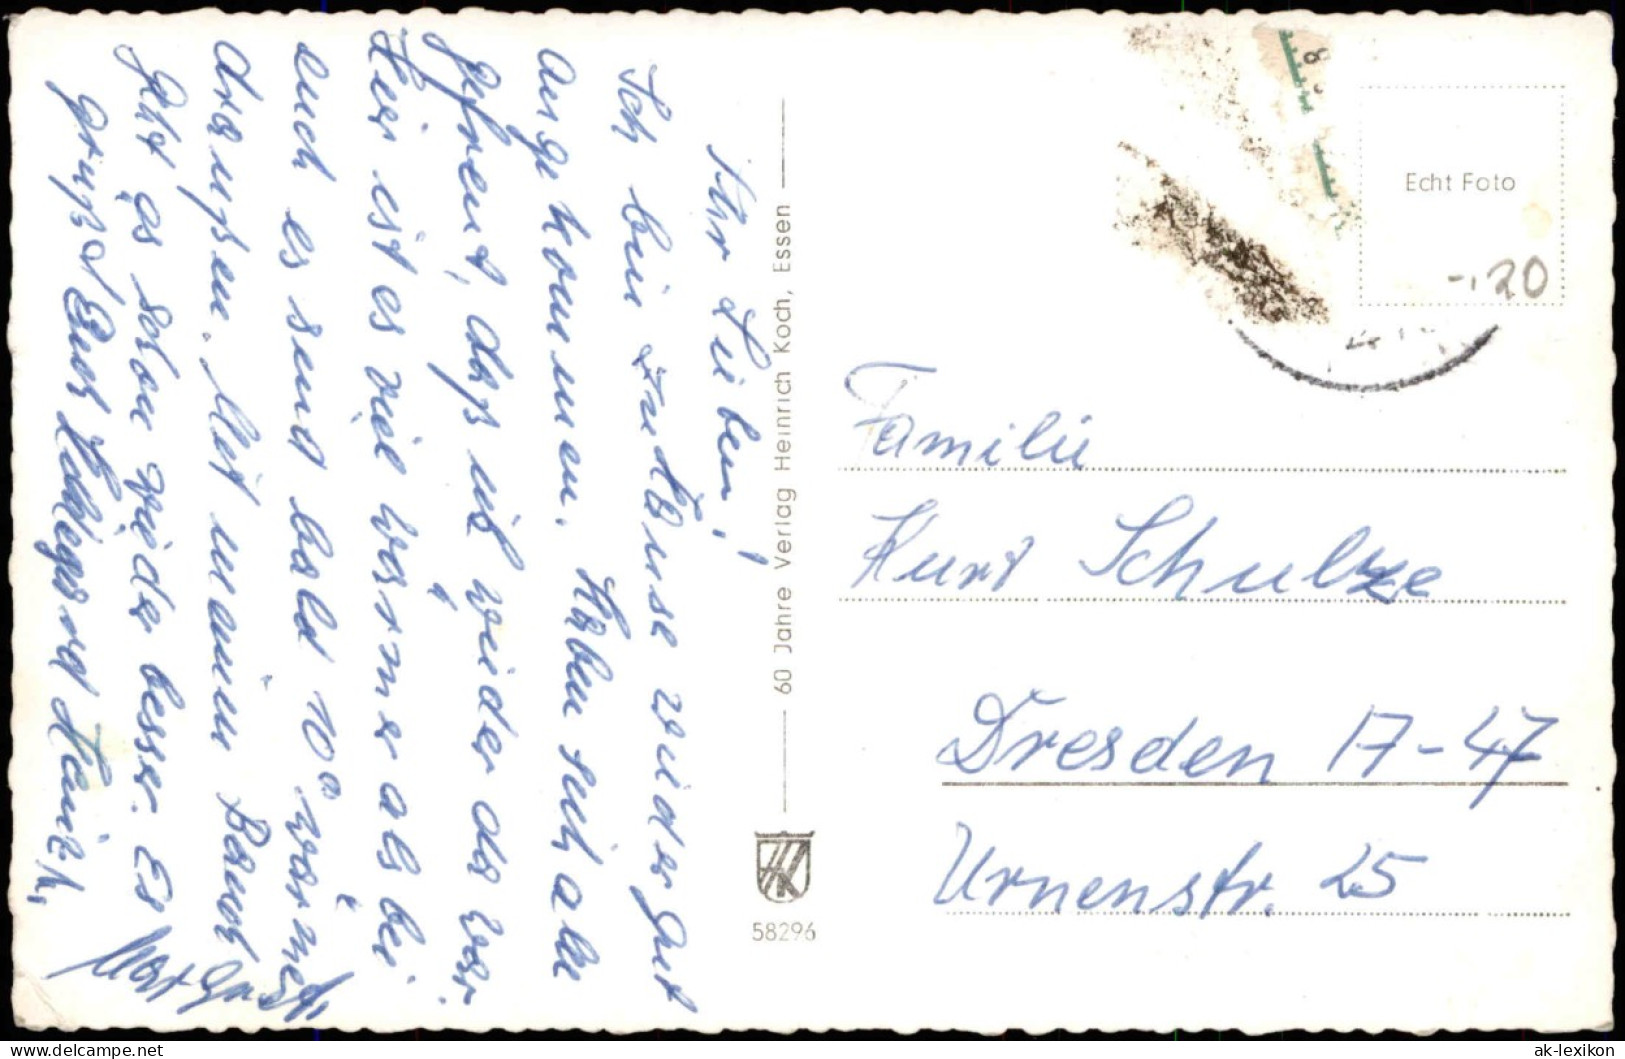 Ihr Lieben!
Ich bin zu Hause wieder gut
angekommen. Haben sich alle
gefreut, daß ich wieder da war.
Hier ist es viel wärmer als bei
euch es sind bald 10° wärmer
draußen. Mit meinem Bauch
geht es schon wieder besser. Es
grüßt Euch Hildegard
60 Jahre Verlag Heinrich Koch, Essen
58296
8
Echt Foto
-.20
Familie
Kurt Schulze
Dresden A-47
Urnenstr. 25
delcampe.net
ak-lexikon